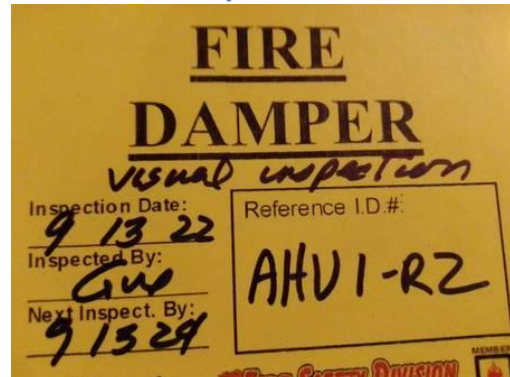 FIRE
DAMPER
visual inspection
Inspection Date:
9 13 22
Inspected By:
Gus
Next Inspect. By:
9 13 24
Reference I.D.#:
AHU1-R2
FIRE SAFETY DIVISION
MEMBER